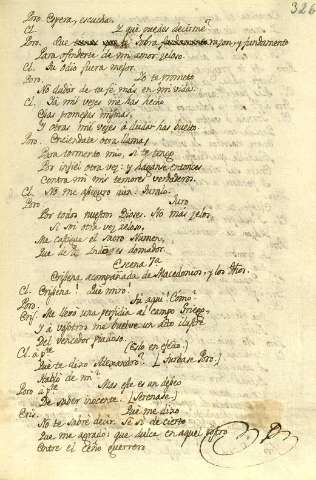 326
Poro. Espera, escucha.
Cl. Y que puedes decirme?
Poro. Que sobra razon, y fundamento
Para ofenderte de mi amor zeloso.
Cl. Tu odio fuera mejor.
Poro. Yo te prometo
No dudar de tu fé mas en mi vida.
Cl. Tu mil veces me has hecho
Esas promesas mismas,
Y otras mil veces á dudar has buelto.
Poro. Enciendate otra llama,
Para tormento mio, si te tengo
Por infiel otra vez: y haganse entonces
Contra mi mis temores verdaderos.
Cl. No me aseguro aun: Jurálo.
Poro Juro
Por todos nuestros Dioses. No mas zelos,
Si soi otra vez zeloso,
Me castigue el sacro Numen,
Que de la India es domador.
Escena 7a
Erisena acompañada de Macedonios, y los dhos.
Cl. Erisena! Que miro!
Poro. Tu aqui? Como?
Eris. Me llevó una perfidia al campo Griego,
Y á vosotros me buelve un acto ilustre
Del vencedor piadoso.
Cl. á pte (Esto en efecto.)
Que te dixo Alexandro? [Turbase Poro.]
Habló de mi?
Poro á pte Mas este es un deseo
De saber inocente. [Serenase.]
Eris. Que me dixo
No te sabré decir: Sé si de cierto
Que me agradó: que dulce en aquel rostro
Entre el ceño guerrero